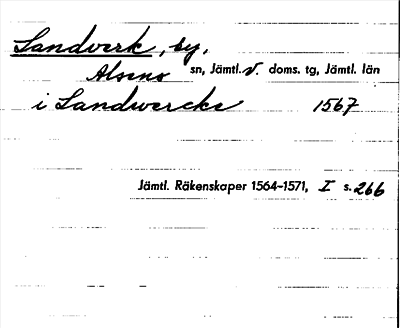 Landverk, by,
Alsens sn, Jämtl. v. doms. tg, Jämtl. län
i Landwercke 1567
Jämtl. Räkenskaper 1564-1571, I s. 266